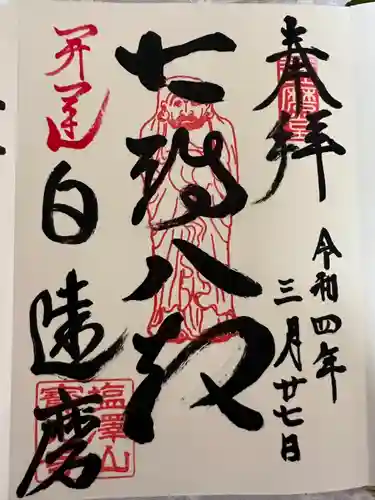 奉拝
達磨堂
令和四年
三月廿七日
七転八起
開運
白達磨
塩澤山